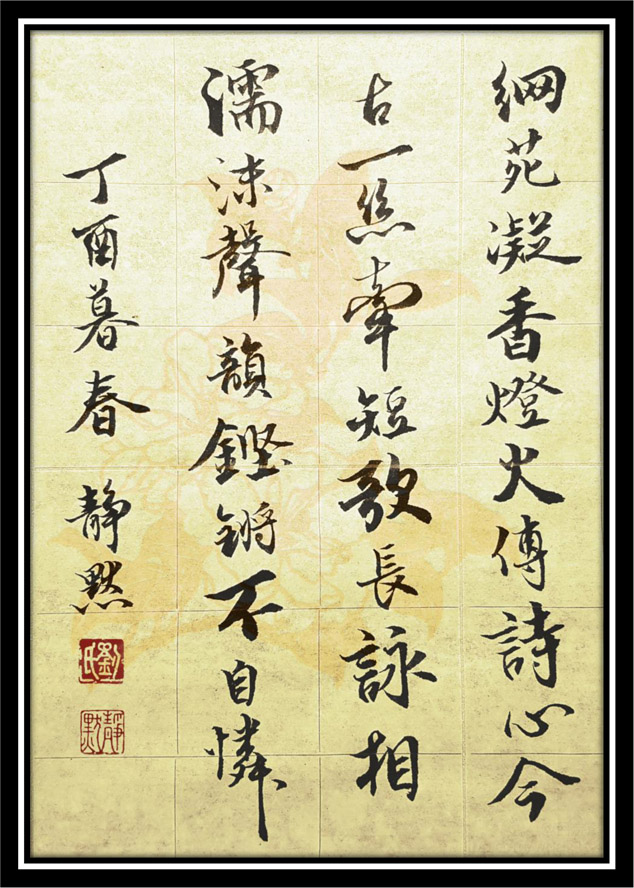 網苑凝香燈火傳詩心今
古一絲牽短歌長詠相
濡沫聲韻鏗鏘不自憐
丁酉暮春 靜默
劉氏
靜默